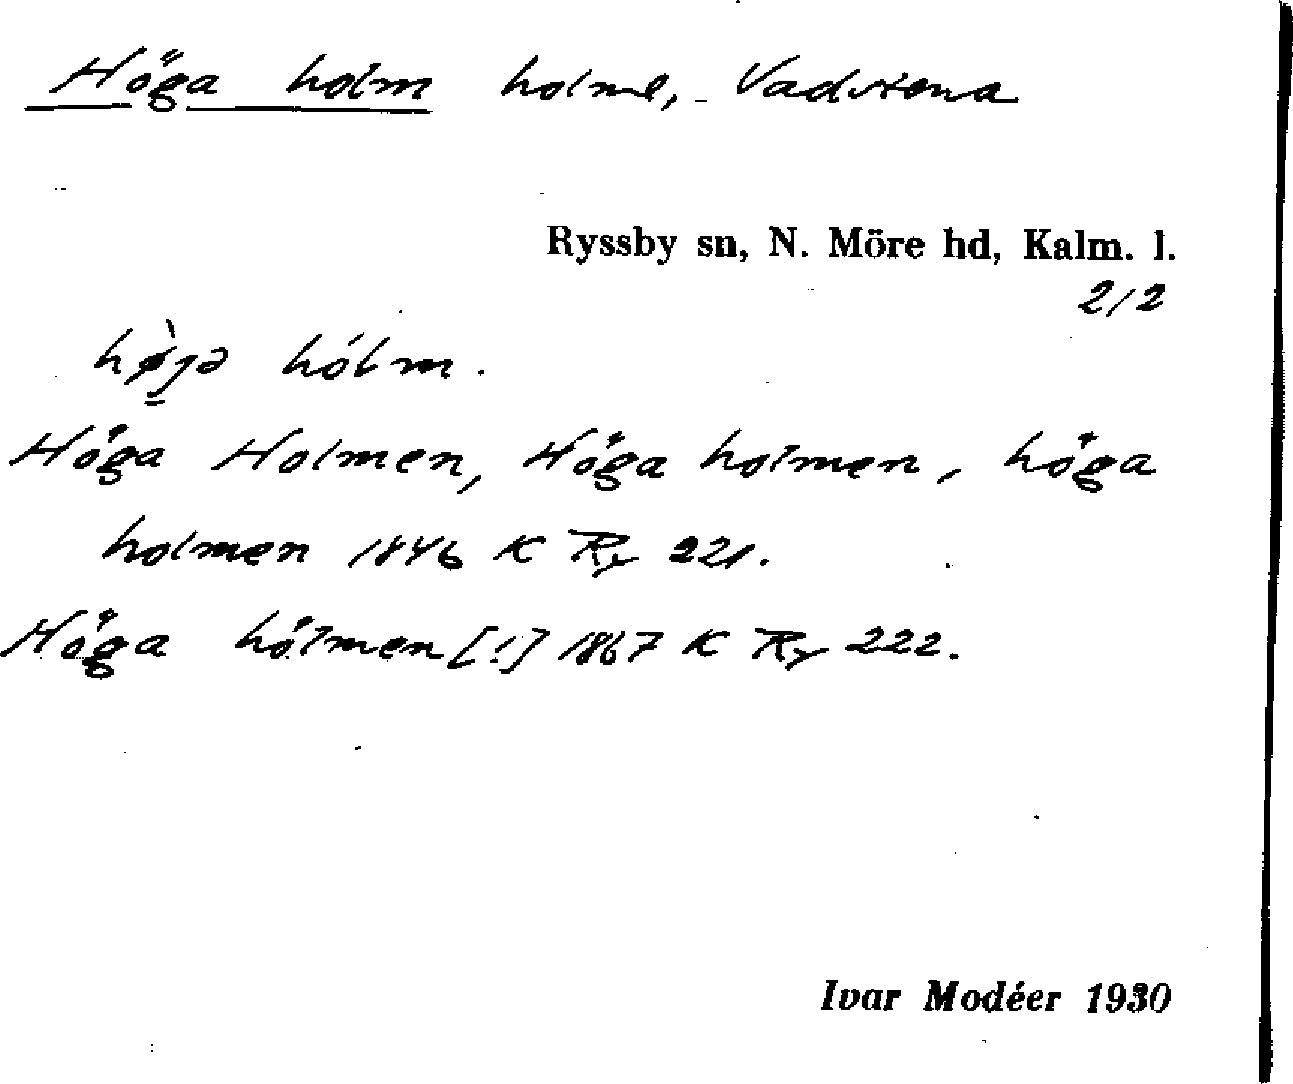 Höga holm holme, Vadviena
Ryssby sn, N. Möre hd, Kalm. l.
2/2
hø̀gə hólm.
Höga Holmen, Höga holmen, höga
holmen 1846 K Ry 221.
Höga hólmen [!] 1867 K Ry 222.
Ivar Modéer 1930